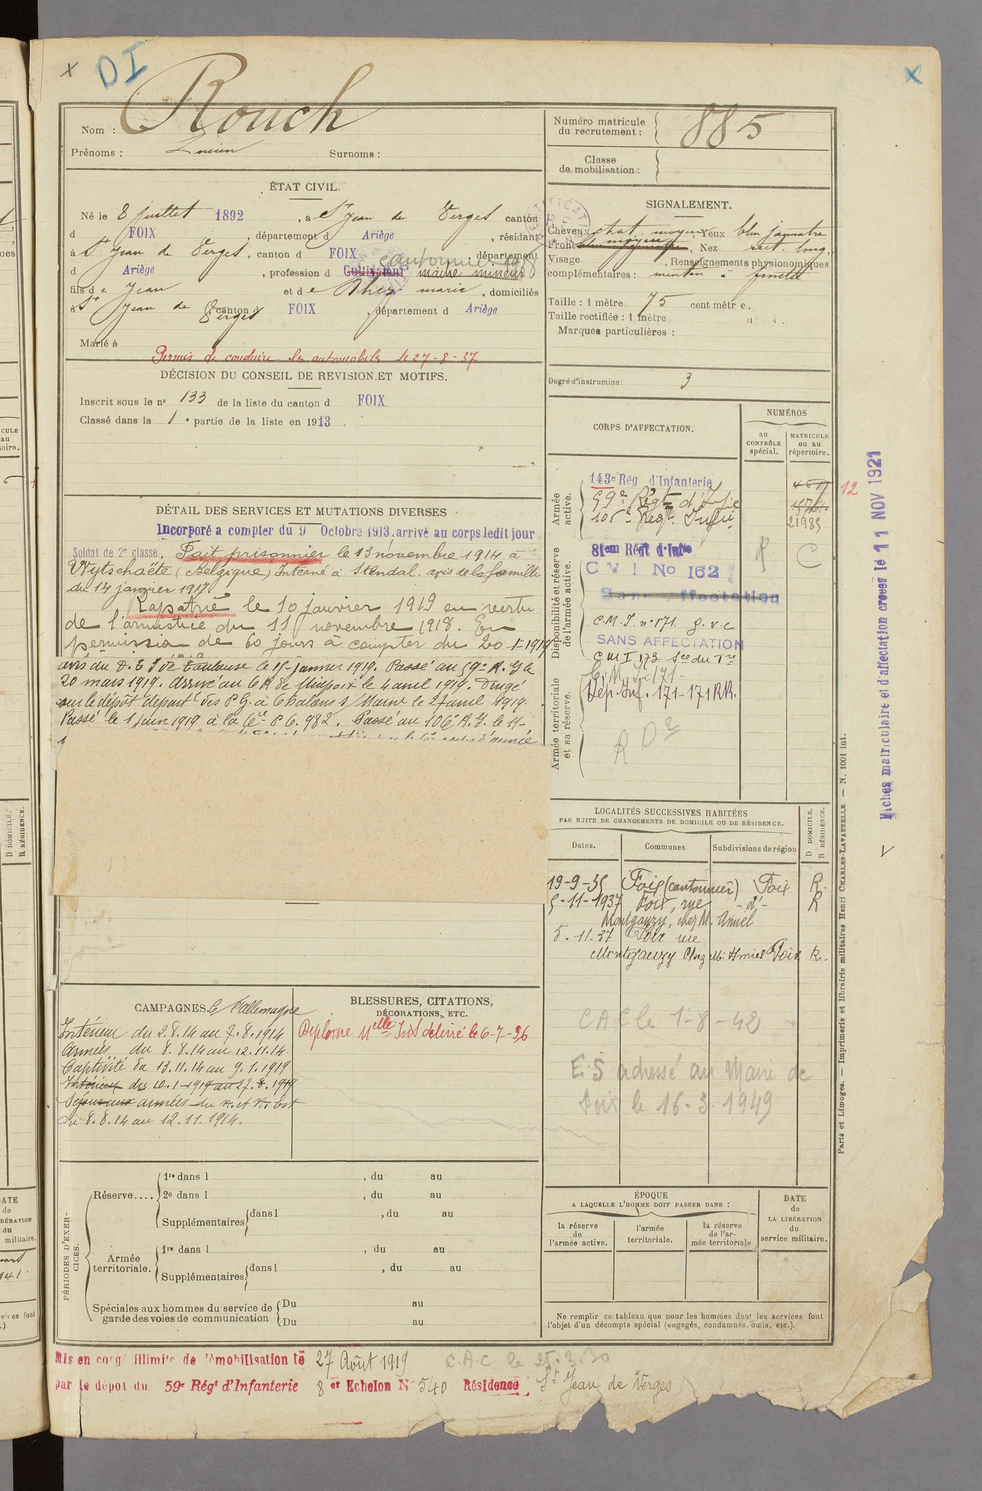 DI
Nom : Rouch
Prénoms : Lucien Surnoms :
Numéro matricule du recrutement : 885
Classe de mobilisation :
ÉTAT CIVIL.
Né le 8 juillet 1892, à St Jean de Verges canton
d FOIX, département d Ariège, résidant
à St Jean de Verges, canton d FOIX département
d Ariège, profession d Cultivateur maître mineur
cantonnier
fils de Jean et de Rhes marie, domiciliés
à St Jean de Verges canton d FOIX, département d Ariège
Marié à
Permis de conduire les automobiles le 27-8-37
SIGNALEMENT.
Cheveux chat. moyen Yeux bleu jaunatre
Front moyen, Nez rect. long
Visage, Renseignements physionomiques
complémentaires : menton à fossette
Taille : 1 mètre 75 centimètre.
Taille rectifiée : 1 mètre
Marques particulières :
Degré d'instruction : 3
DÉCISION DU CONSEIL DE REVISION ET MOTIFS.
Inscrit sous le n° 133 de la liste du canton d FOIX
Classé dans la 1e partie de la liste en 1913.
DÉTAIL DES SERVICES ET MUTATIONS DIVERSES
Incorporé à compter du 9 Octobre 1913, arrivé au corps ledit jour
Soldat de 2e classe. Fait prisonnier le 13 novembre 1914 à
Wytschaëte (Belgique) Interné à Stendal, avis de la famille
du 14 janvier 1917.
Rapatrié le 10 janvier 1919 en vertu
de l'armistice du 11 novembre 1918. En
permission de 60 jours à compter du 20-1-1919
avis du D.E.I de Toulouse le 15 janvier 1919. Passé au 59e R.I. le
20 mars 1919. Arrivé au CR de Mirepoix le 4 avril 1919. Dirigé
sur le dépôt départ des P.G. à Chalons s/ Marne le 27 avril 1919.
Passé le 1 juin 1919 à la Cie P.G. 982. Passé au 106e R.I. le 11-
CORPS D'AFFECTATION.
NUMÉROS
au CONTRÔLE spécial.
MATRICULE ou au répertoire.
Armée active.
143e Rég d'Infanterie
59e Régt d'Infie
106e Régt Infie
21985
12
Disponibilité et réserve de l'armée active.
81em Régt d'Infie
C V I No 162
Sans Affectation
R
C
C.M.I. n° 171 g.v.c
SANS AFFECTATION
C M I 173 Son du Tn
C.M. I. 171-
Dép. Inf. 171-171 R.R.
Armée territoriale et sa réserve.
R D2
Fiches matriculaire et d'affectation créées le 11 NOV 1921
LOCALITÉS SUCCESSIVES HABITÉES
PAR SUITE DE CHANGEMENTS DE DOMICILE OU DE RÉSIDENCE.
Dates. Communes. Subdivisions de région
D DOMICILE. R RÉSIDENCE.
19-9-35 Foix (cantonnier) Foix R.
5-11-1937 Foix, rue -d°- R
Montgauzy, chez M. Amiel
5.11.37 Foix rue
Montgauzy Chez M. Amiel Foix R.
CAC le 1-8-42
E.S adressé au Maire de
Foix le 16-3-1949
CAMPAGNES. C. l'Allemagne
Intérieur du 2.8.14 au 7.8.1914
Armées du 8.8.14 au 12.11.14
Captivité du 13.11.14 au 9.1.1919
Intérieur du 10.1.1919 au 27.8.1919
Séjour aux armées du N. et N. Est
du 8.8.14 au 12.11.1914.
BLESSURES, CITATIONS,
DÉCORATIONS, ETC.
Diplome Melle Ind délivré le 6-7-36
PÉRIODES D'EXERCICES.
Réserve....
1re dans l , du au
2e dans l , du au
Supplémentaires dans l , du au
Armée territoriale.
1re dans l , du au
Supplémentaires dans l , du au
Spéciales aux hommes du service de garde des voies de communication
Du au
Du au
ÉPOQUE
A LAQUELLE L'HOMME DOIT PASSER DANS :
la réserve de l'armée active.
l'armée territoriale.
la réserve de l'armée territoriale
DATE de LA LIBÉRATION du service militaire.
Ne remplir ce tableau que pour les hommes dont les services font
l'objet d'un décompte spécial (engagés, condamnés, omis, etc.).
Paris et Limoges. — Imprimerie et librairie militaires Henri CHARLES-LAVAUZELLE. — N. 1001 int.
Mis en congé illimité de démobilisation le 27 Août 1919 C.A.C le 25.3.30
par le dépôt du 59e Régt d'Infanterie 8er Echelon N° 540 Résidence : St Jean de Verges